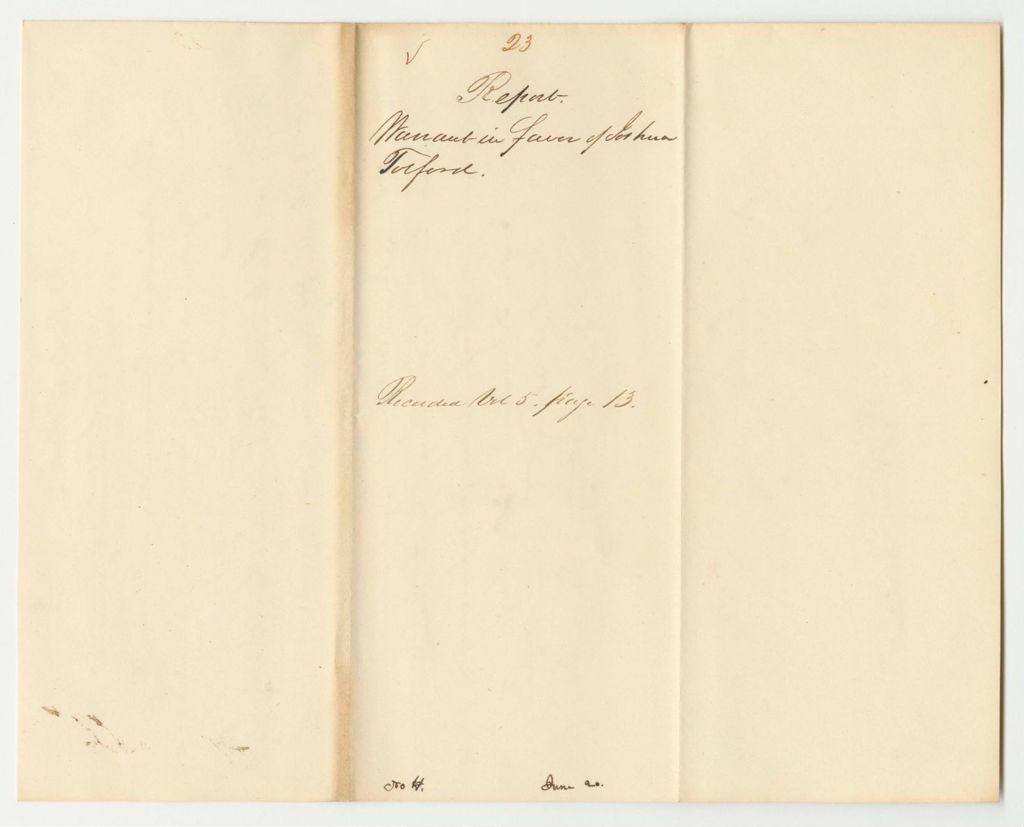 23
Report.
Warrant in favor of Joshua
Tolford.
Recorded Vol 5. page 13.
No 4.
June 20.